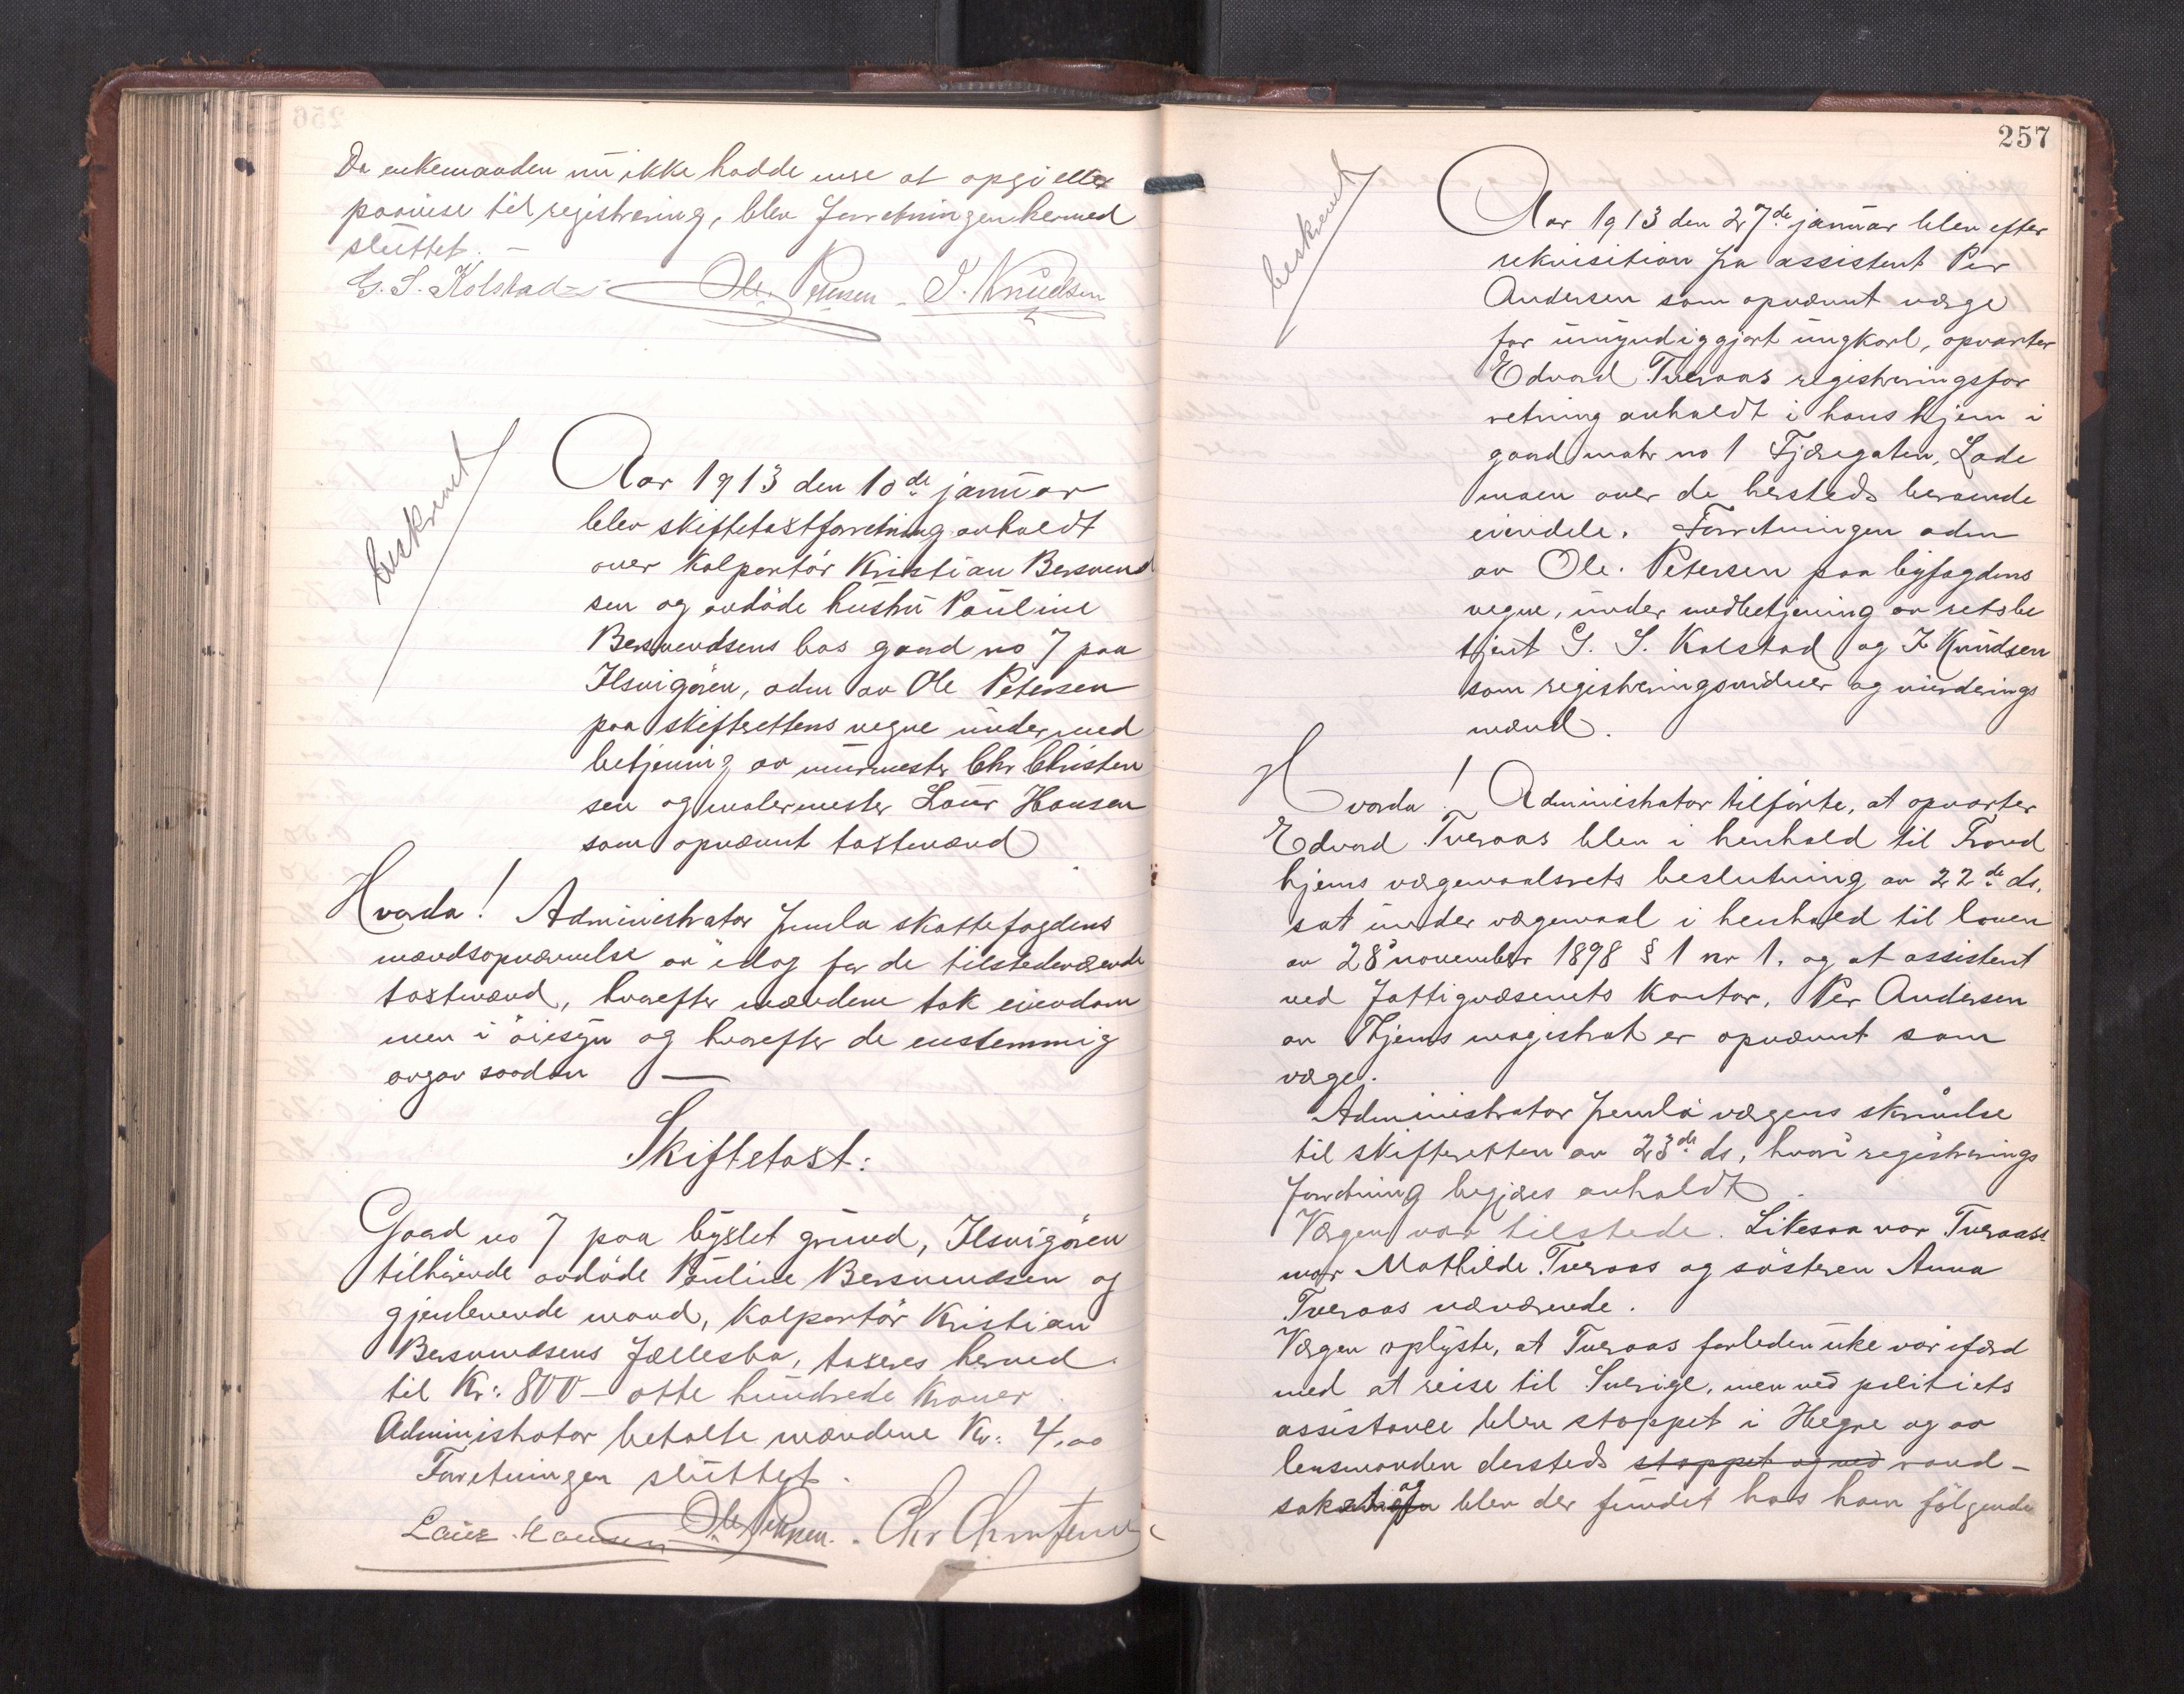 Da enkemanden nu ikke hadde mere at opgi eller
paavise til registrering, blev forretningen hermed
sluttet. —
G. S. Kolstad Ole Petersen J. Knudsen
beskrevet
Aar 1913 den 10de januar
blev skiftetaxtforretning avholdt
over kolportör Kristian Bersvend
sen og avdöde hustru Pauline
Bersvendsens bos gaard no 7 paa
Ilsvigören, adm av Ole Petersen
paa skifterettens vegne under med
betjening av murmester Chr Christen
sen og malermester Laur Hansen
som opnævnt taxtmænd
Hvorda! Administrator fremla skattefogdens
mændsopnævnelse av idag for de tilstedeværende
taxtmænd, hvorefter mændene tok eiendom
men i öiesyn og hvorefter de enstemmig
avgav saadan —
Skiftetaxt:
Gaard no 7 paa bygslet grund, Ilsvigören
tilhörende avdöde Pauline Bersvendsen og
gjenlevende mand, kolportör Kristian
Bersvendsens fællesbo, taxeres herved
til Kr: 800 – otte hundrede kroner
Administrator betalte mændene Kr: 4,00
Forretningen sluttet.
Laur. Hansen Ole Petersen. Chr Christensen
257
beskrevet
Aar 1913 den 27de januar blev efter
rekvisition fra assistent Per
Andersen som opnævnt værge
for umyndiggjort ungkarl, opvarter
Edvard Tveraas registreringsfor
retning avholdt i hans hjem i
gaard matr no 1 Fjæregaten, Lade
moen over de hersteds beroende
eiendele. Forretningen adm
av Ole. Petersen paa byfogdens
vegne, under medbetjening av retsbe
tjent G. S. Kolstad og J. Knudsen
som registreringsvidner og vurderings
mænd.
Hvorda! Administrator tilförte, at opvarter
Edvard Tveraas blev i henhold til Trond
hjems værgemaalsrets beslutning av 22de ds.
sat under værgemaal i henhold til loven
av 28 november 1898 § 1 nr 1. og at assistent
ved fattigvæsenets kontor, Per Andersen
av Thjems magistrat er opnævnt som
værge.
Administrator fremla værgens skrivelse
til skifteretten av 23de ds, hvori registrerings
forretning begjæres avholdt.
Værgen var tilstede. Likesaa var Tveraas:
mor Mathilde Tveraas og sösteren Anna
Tveraas nærværende.
Værgen oplyste, at Tveraas forleden uke var ifærd
med at reise til Sverige, men ved politiets
assistance blev stoppet i Hegre og av
lensmanden dersteds stoppet og ved rand-
sakt og blev der fundet hos ham fölgende